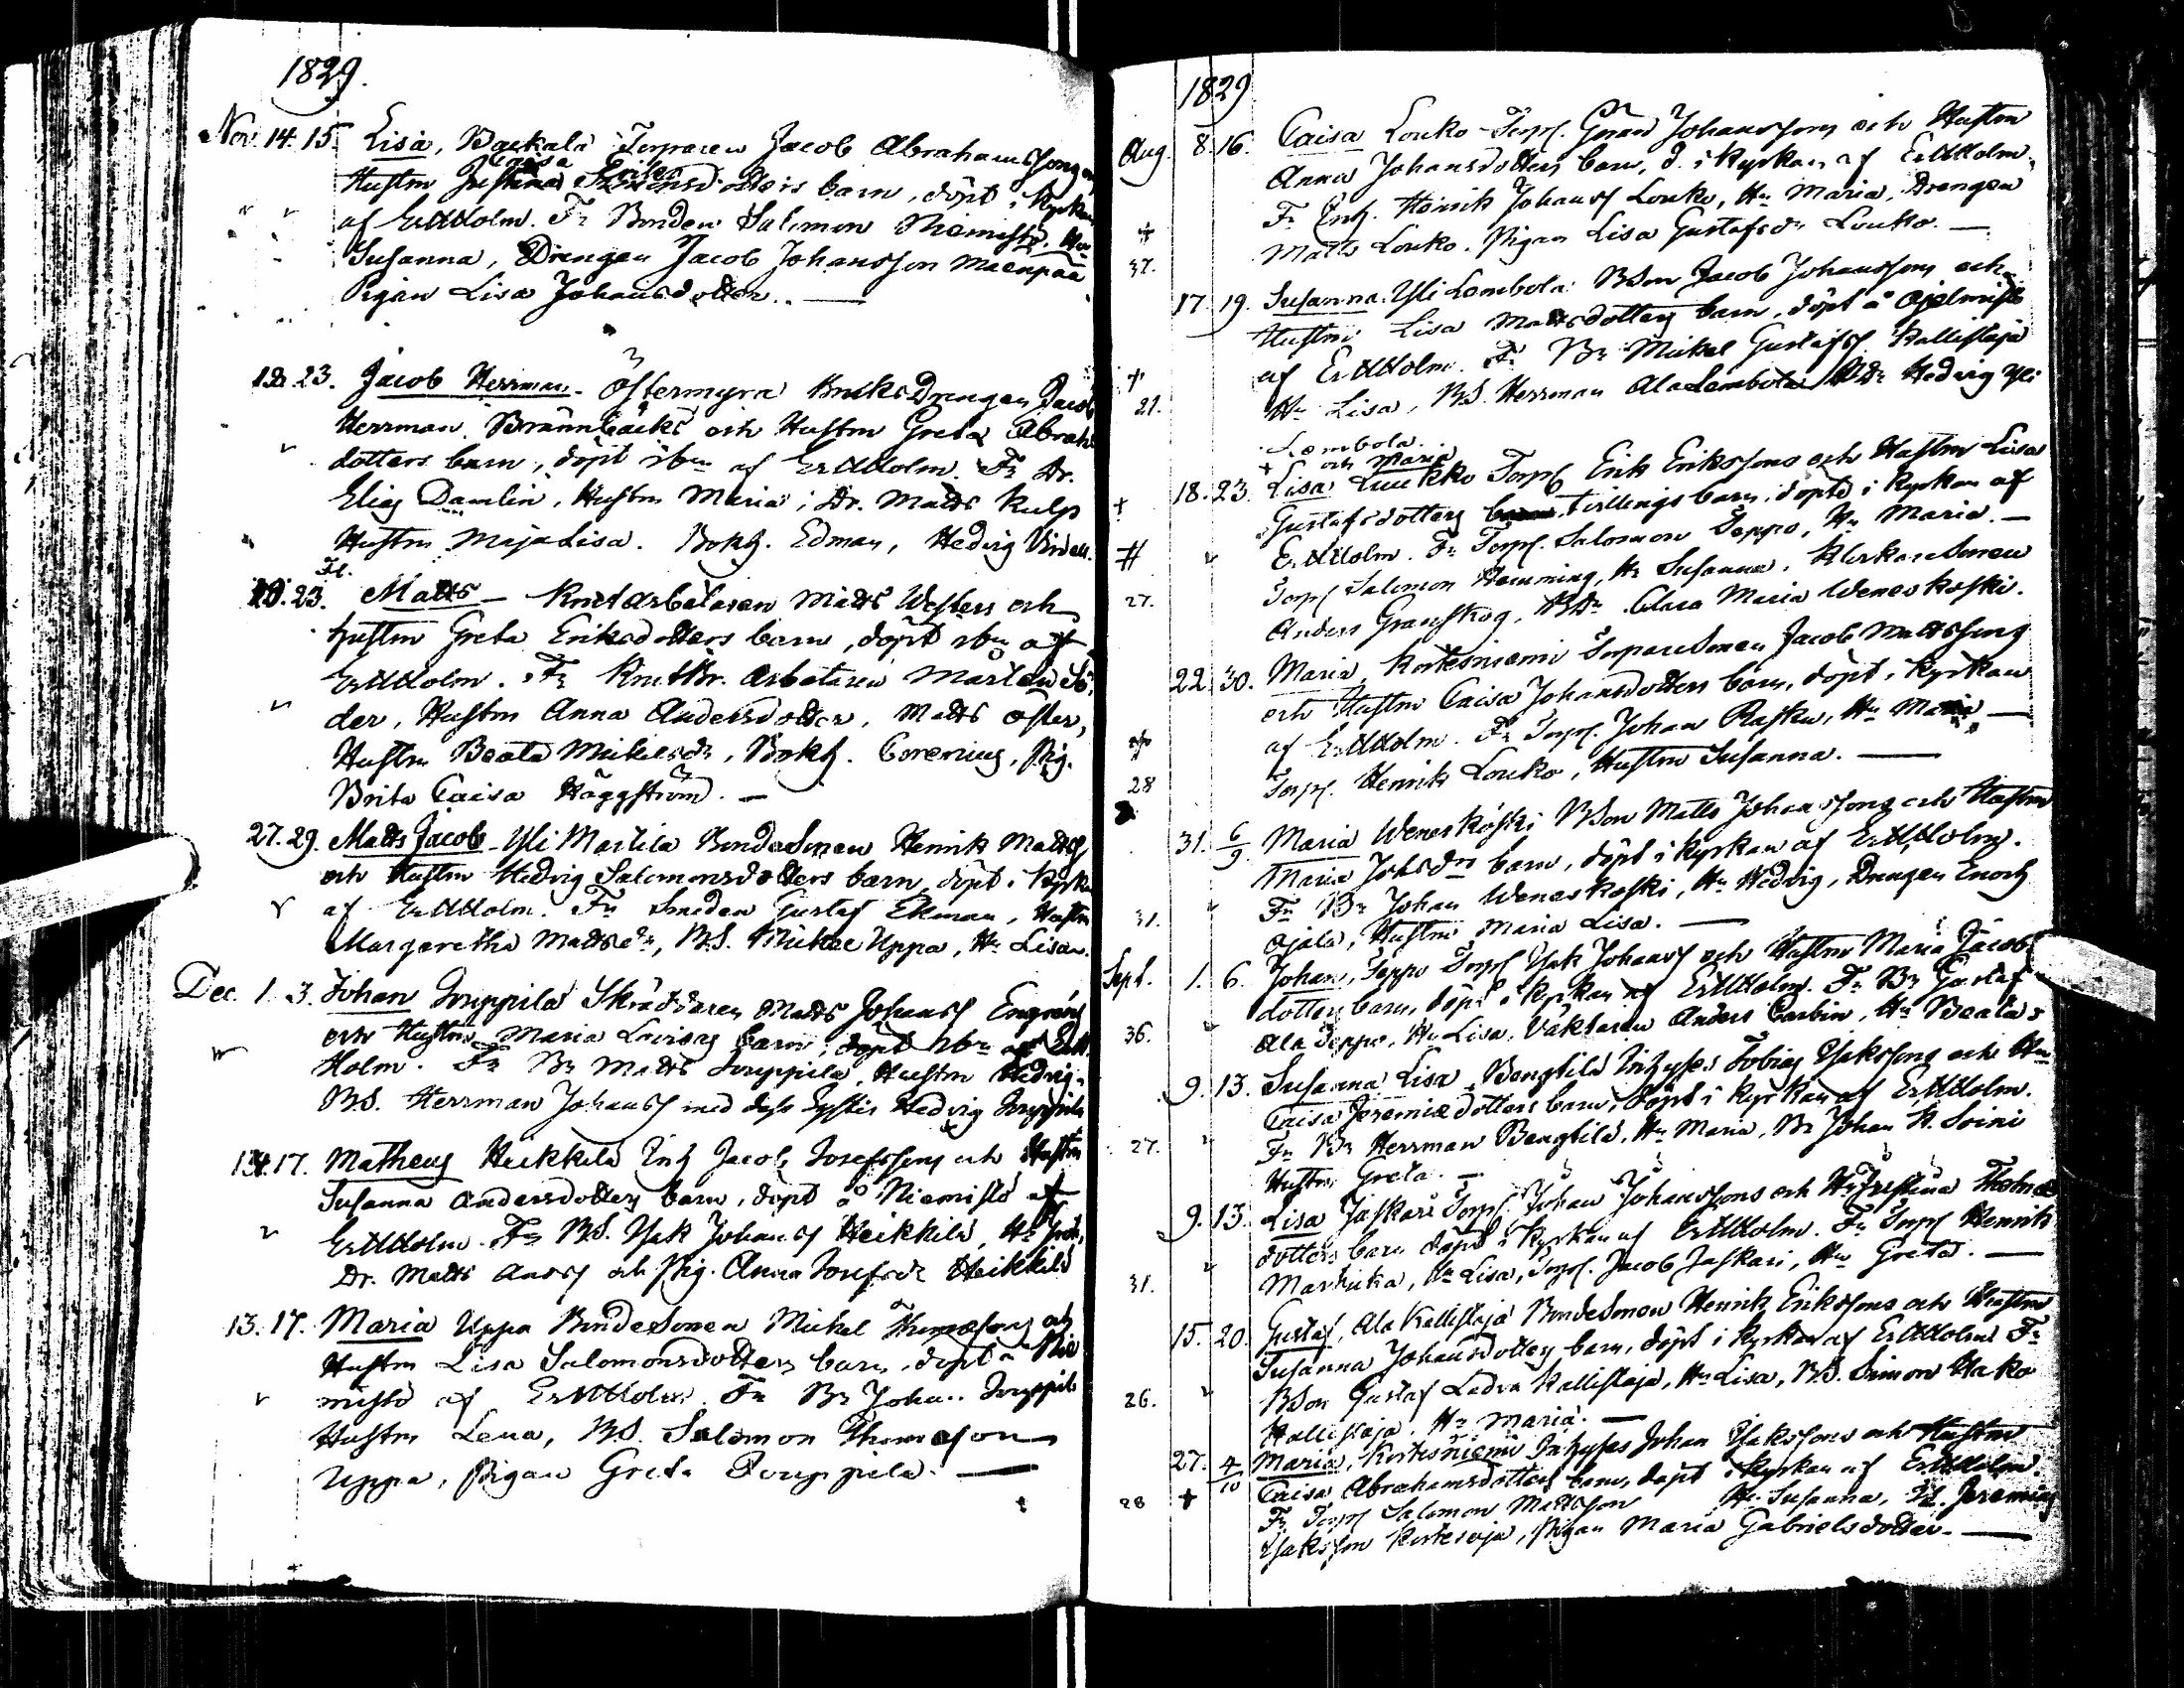 1829.
Nov. 14. 15. Lisa, Backala Torparen Jacob Abrahamssons
Caisa Eriks
Hustru dotters barn, döpt i Kyrkan
af ErMHolm. Fr Bonden Salomon Niemistö, Hu
Susanna, Drengen Jacob Johansson Maenpää
Pigan Lisa Johansdotter. —
23. Jacob Herrman - Östermyra BruksDrengen Jacob
Herrman Brännbacks och Hustru Greta Abrah
dotters barn, döpt ibm af ErMHolm. Fr Dr.
Elias Damlin, Hustru Maria; Dr. Matts Kulp
Hustru MajaLisa. Bokh. Edman, Hedvig
20. 23. Matts - Krutarbetaren Matts Westers och
Hustru Greta Eriksdotters barn, döpt ibm af
ErMHolm. Fr Krutbr. Arbetaren Mårten Sö-
der, Hustru Anna Andersdotter, Matts Öster,
Hustru Beata Mickelsdr, Bokh. Corenius, Pig.
Brita Caisa Häggström. —
27. 29. Matts Jacob - Yli Marttila BondeSonen Henrik Mattss
och Hustru Hedvig Salomonsdotters barn, döpt i Kyrkan
af ErMHolm. Fr Smeden Gustaf Ekman, Hustru
Margaretha Mattsdr, B.S. Mickel Uppa, Hu Lisa.
Dec. 1. 3. Johan Jouppila Skräddaren Matts Johanss Engrens
och Hustru Maria Lovisas barn, döpt ibm af ErM
Holm. Fr Br Matts Jouppila, Hustru Hedvig.
B.S. Herrman Johanss med dess Syster Hedvig Jouppila
17. Matheus Heikkilä Inh Jacob Josefssons och Hustru
Susanna Andersdotters barn, döpt å Niemistö af
ErMHolm. Fr B.S. Isak Johanss Heikkilä, Hu
Dr. Matts Anders och Pig. Anna Josefsdr Heikkilä
13. 17. Maria Uppa BondeSonen Mickel Thomassons och
Hustru Lisa Salomonsdotters barn, döpt å Nie
mistö af ErMHolm. Fr Br Johan Jouppila
Hustru Lena, B.S. Salomon Thomasson
Uppa, Pigan Greta Jouppila. —
1829
Aug. 8. 16. Caisa Louko Torp. Johanssons och Hustru
Anna Johansdotters barn, d. i Kyrkan af ErMHolm.
Fr Inh. Henrik Johanss Louko, Hu Maria, Drengen
37. Matts Louko. Pigan Lisa Gustafsdr Louko. —
17. 19. Susanna Yli Lombola BSon Jacob Johanssons och
Hustru Lisa Mattsdotters barn, döpt å
af ErMHolm. Fr Br Mickel Gustafss Kallistaja
21. Hu Lisa, B.S. Herrman AlaLombola BDr Hedvig Yli
Lombola.
och Maria
18. 23. Lisa Luukko Torp Erik Erikssons och Hustru Lisa
Gustafsdotters tvillingsbarn, döpte i Kyrkan af
ErMHolm. Fr Torp. Salomon Seppo, Hu Maria. —
Torp Salomon Hemming, Hu Susanna. KlockareSonen
27. Anders Granskog, BDr Clara Maria Weneskoski.
22. 30. Maria, Kortesniemi TorpareSonen Jacob Mattssons
och Hustru Caisa Johansdotters barn, döpt i Kyrkan
af ErMHolm. Fr Torp. Johan Rasku, Hu Maria —
28 Torp. Henrik Louko, Hustru Susanna. —
31. 6/9 Maria Weneskoski BSon Matts Johanssons och Hustru
Maria Johsdrs barn, döpt i Kyrkan af ErMHolm.
Fr Br Johan Weneskoski, Hu Hedvig, Drengen Enoch
31. Ojala, Hustru Maria Lisa. —
Sept. 1. 6. Johan, Seppo Torp Isak Johanss och Hustru Maria Jacobs
dotters barn, döpt i Kyrkan af ErMHolm. Fr Br Gustaf
36. Ala Seppo, Hu Lisa, Väktaren Anders Carbin, Hu Beata
9. 13. Susanna Lisa, Bengtilä Inhyses Tobias Isakssons och Hu
Caisa Jeremiædotters barn, döpt i Kyrkan af ErMHolm.
27. Fr Br Herrman Bengtilä, Hu Maria, Br Johan K. Soini
Hustru Greta. —
9. 13. Lisa Jaskari Torp. Johan Johanssons och Hu Justina Thomæ
dotters barn döpt i Kyrkan af ErMHolm. Fr Torp Henrik
31. Hu Lisa, Torp. Jacob Jaskari, Hu Greta. —
15. 20. Gustaf, Ala Kallistaja BondeSonen Henrik Erikssons och Hustru
Susanna Johansdotters barn, döpt i Kyrkan af ErMHolm Fr
26. BSon Gustaf Kallistaja, Hu Lisa, B.S. Simon Hako
Kallistaja, Hu Maria. —
27. 4/10 Maria, Kortesniemi Inhyses Johan Isakssons och Hustru
Caisa Abrahamsdotters barn, döpt i Kyrkan af ErMHolm.
28 Fr Torp Salomon Mattsson Hu Susanna, Jeremias
Isaksson Kortesoja, Pigan Maria Gabrielsdotter. —